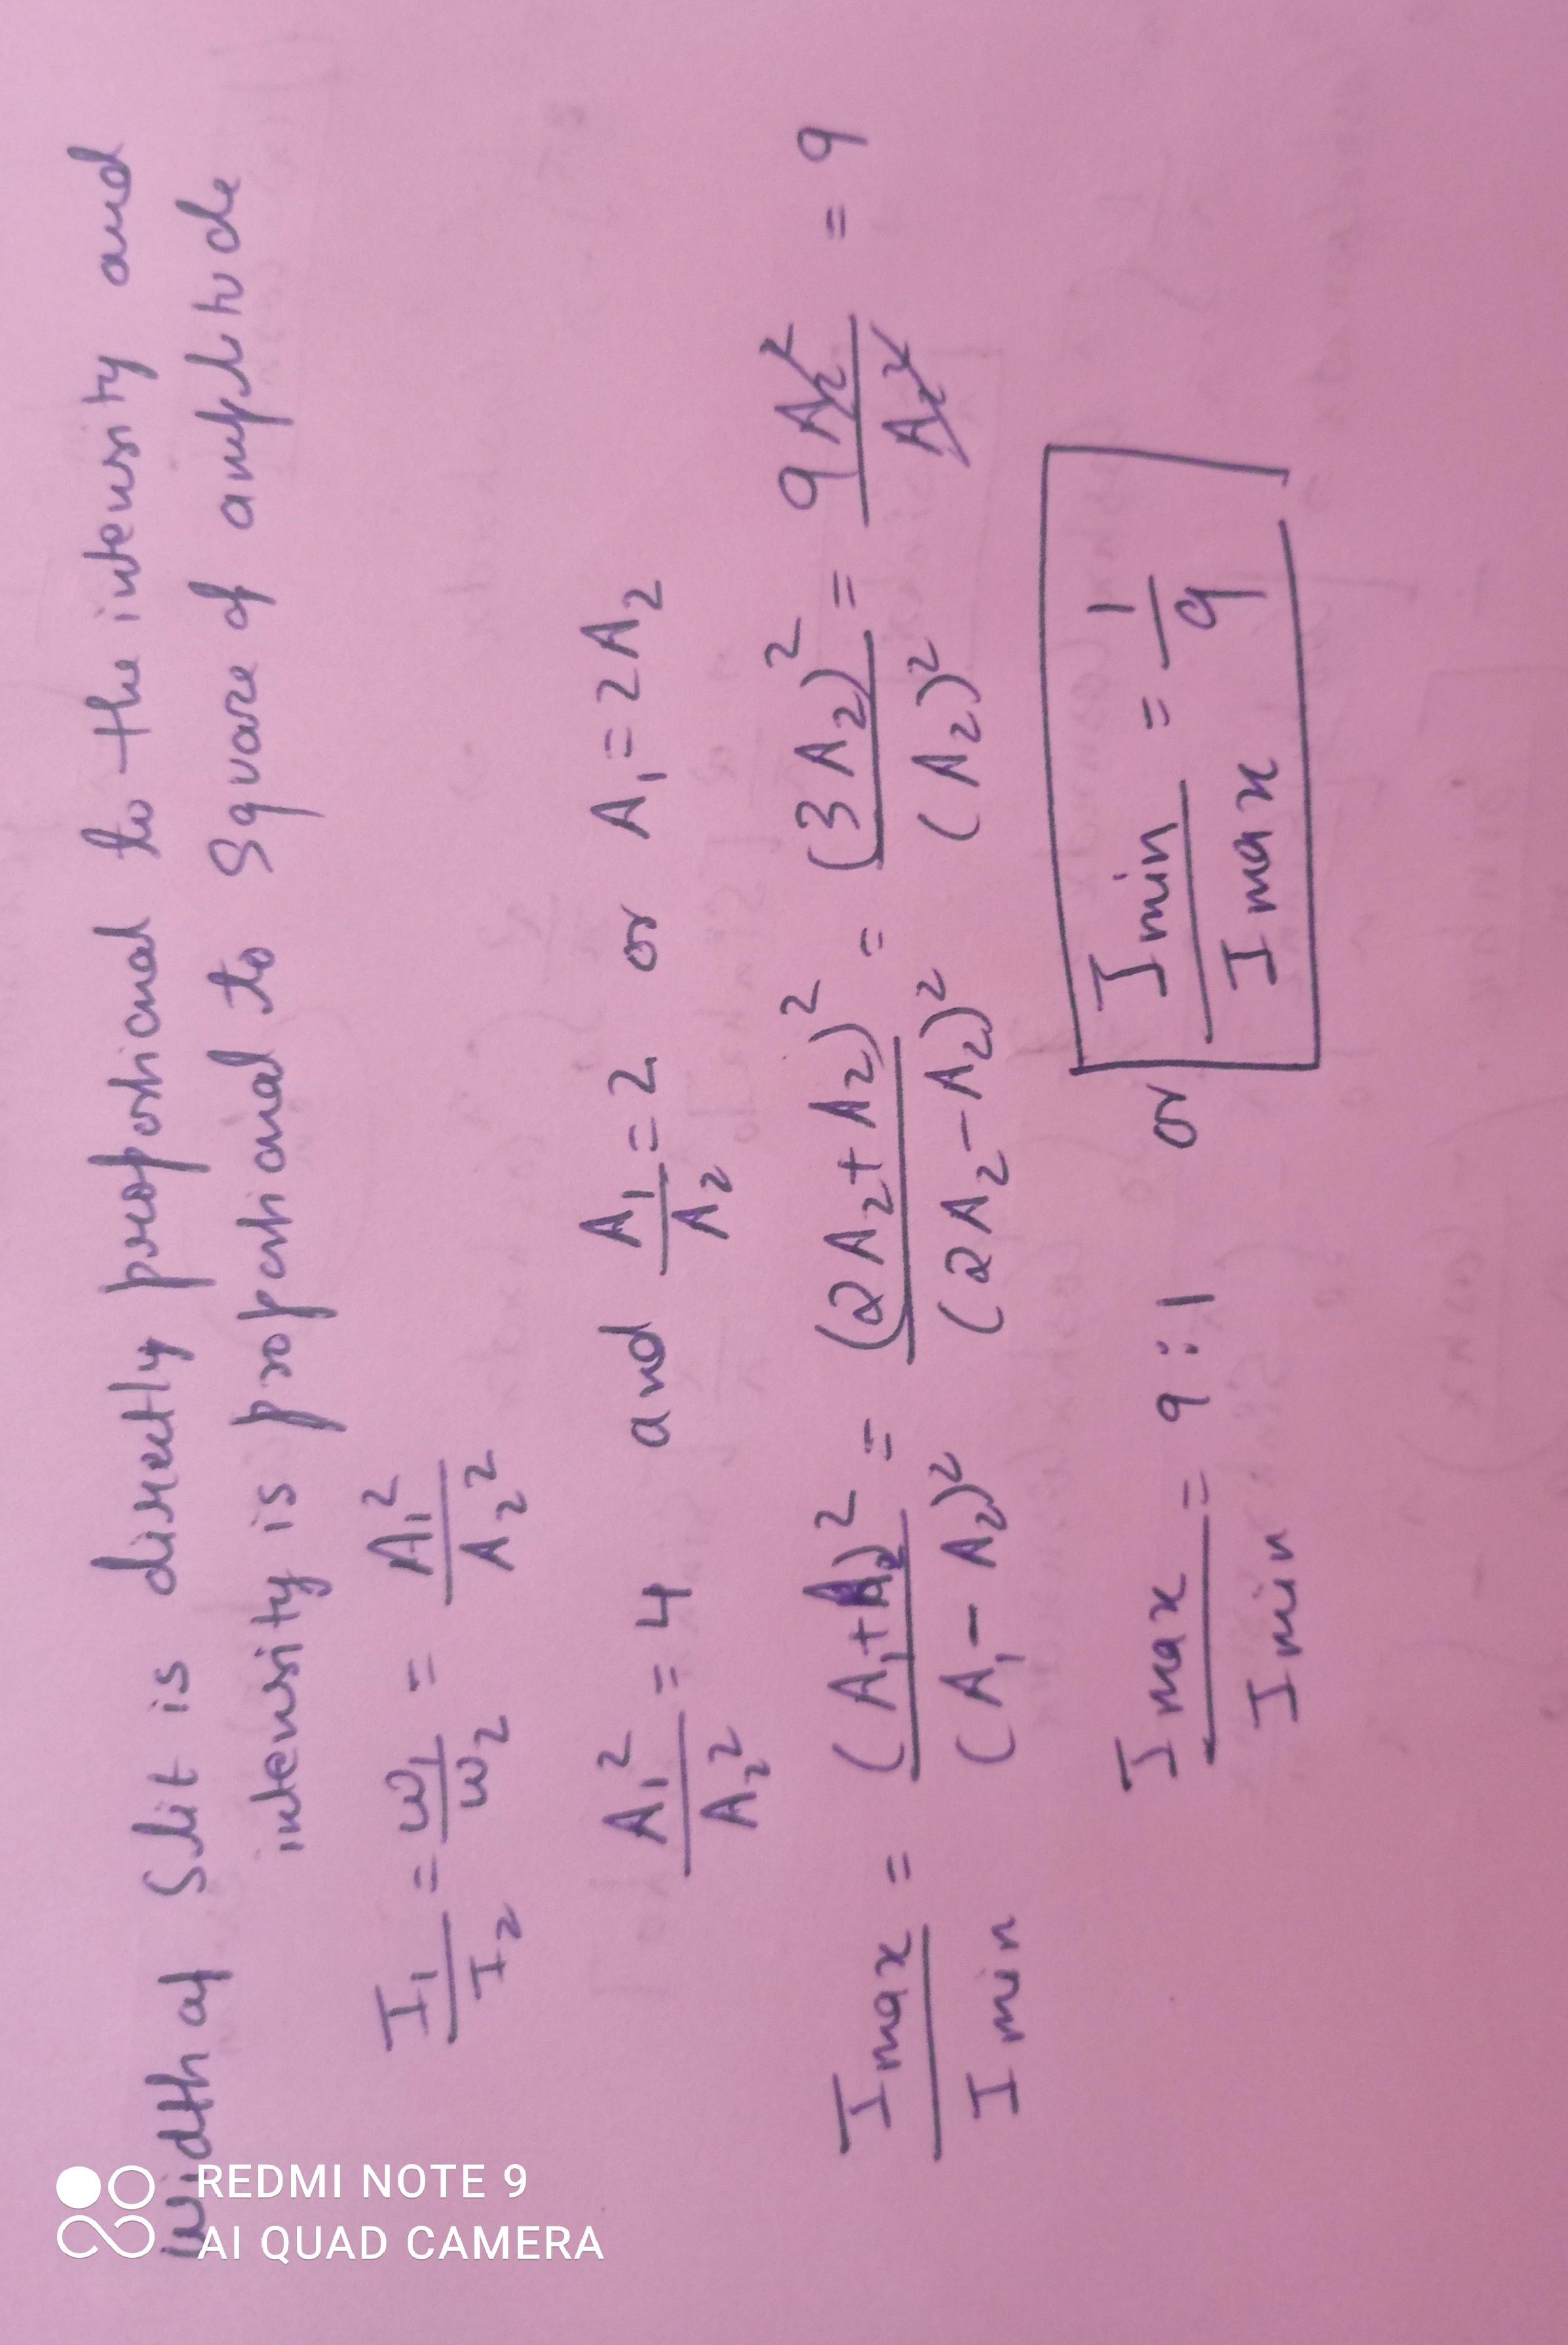 Width of Slit is directly proportional to the intensity and
intensity is proportional to Square of amplitude
I₁/I₂ = ω₁/ω₂ = A₁²/A₂²
A₁²/A₂² = 4 and A₁/A₂ = 2 or A₁ = 2A₂
I max/I min = (A₁+A₂)²/(A₁-A₂)² = (2A₂+A₂)²/(2A₂-A₂)² = (3A₂)²/(A₂)² = 9A₂²/A₂² = 9
I max/I min = 9:1 or I min/I max = 1/9
REDMI NOTE 9
AI QUAD CAMERA